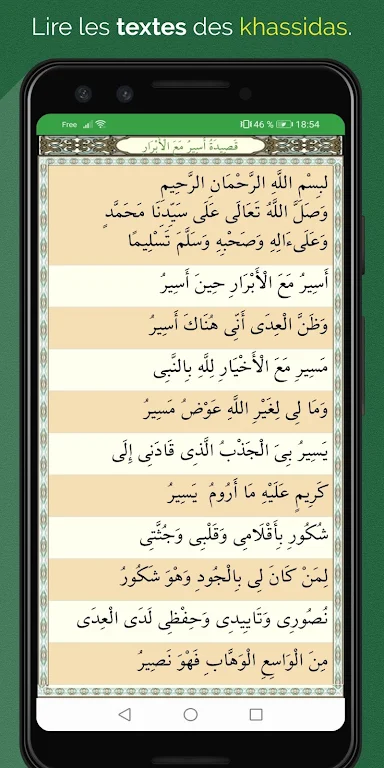 Lire les textes des khassidas.
Free 46 % 18:54
قَصِيدَةُ أَسِيرُ مَعَ الْأَبْرَار
لبِسْمِ اللَّهِ الرَّحْمَانِ الرَّحِيمِ
وَصَلَّ اللَّهُ تَعَالَى عَلَى سَيِّدِنَا مَحَمَّدٍ
وَعَلَىءَالِهِ وَصَحْبِهِ وَسَلَّمَ تَسْلِيمًا
أَسِيرُ مَعَ الْأَبْرَارِ حِينَ أَسِيرُ
وَظَنَّ الْعِدَى أَنِّى هُنَاكَ أَسِيرُ
مَسِيرِ مَعَ الْأَخْيَارِ لِلَّهِ بِالنَّبِى
وَمَا لِى لِغَيْرِ اللَّهِ عَوْضُ مَسِيرُ
يَسِيرُ بِىَ الْجَذْبُ الَّذِى قَادَنِى إِلَى
كَرِيمٍ عَلَيْهِ مَا أَرُومُ يَسِيرُ
شُكُورِ بِأَقْلَامِى وَقَلْبِى وَجُثَّتِى
لِمَنْ كَانَ لِى بِالْجُودِ وَهْوَ شَكُورُ
نُصُورِى وَتَابِيدِى وَحِفْظِى لَدَى الْعِدَى
مِنَ الْوَاسِعِ الْوَهَّابِ فَهْوَ نَصِيرُ